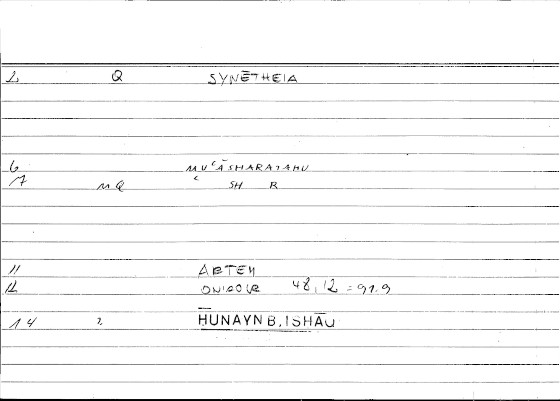 1 Q SYNĒTHEIA
6 MUʿĀSHARATAHU
7 MQ ʿ SH R
11 ARTEM
12 48,12 = 91.9
14 2 HUNAYN B. ISHĀQ